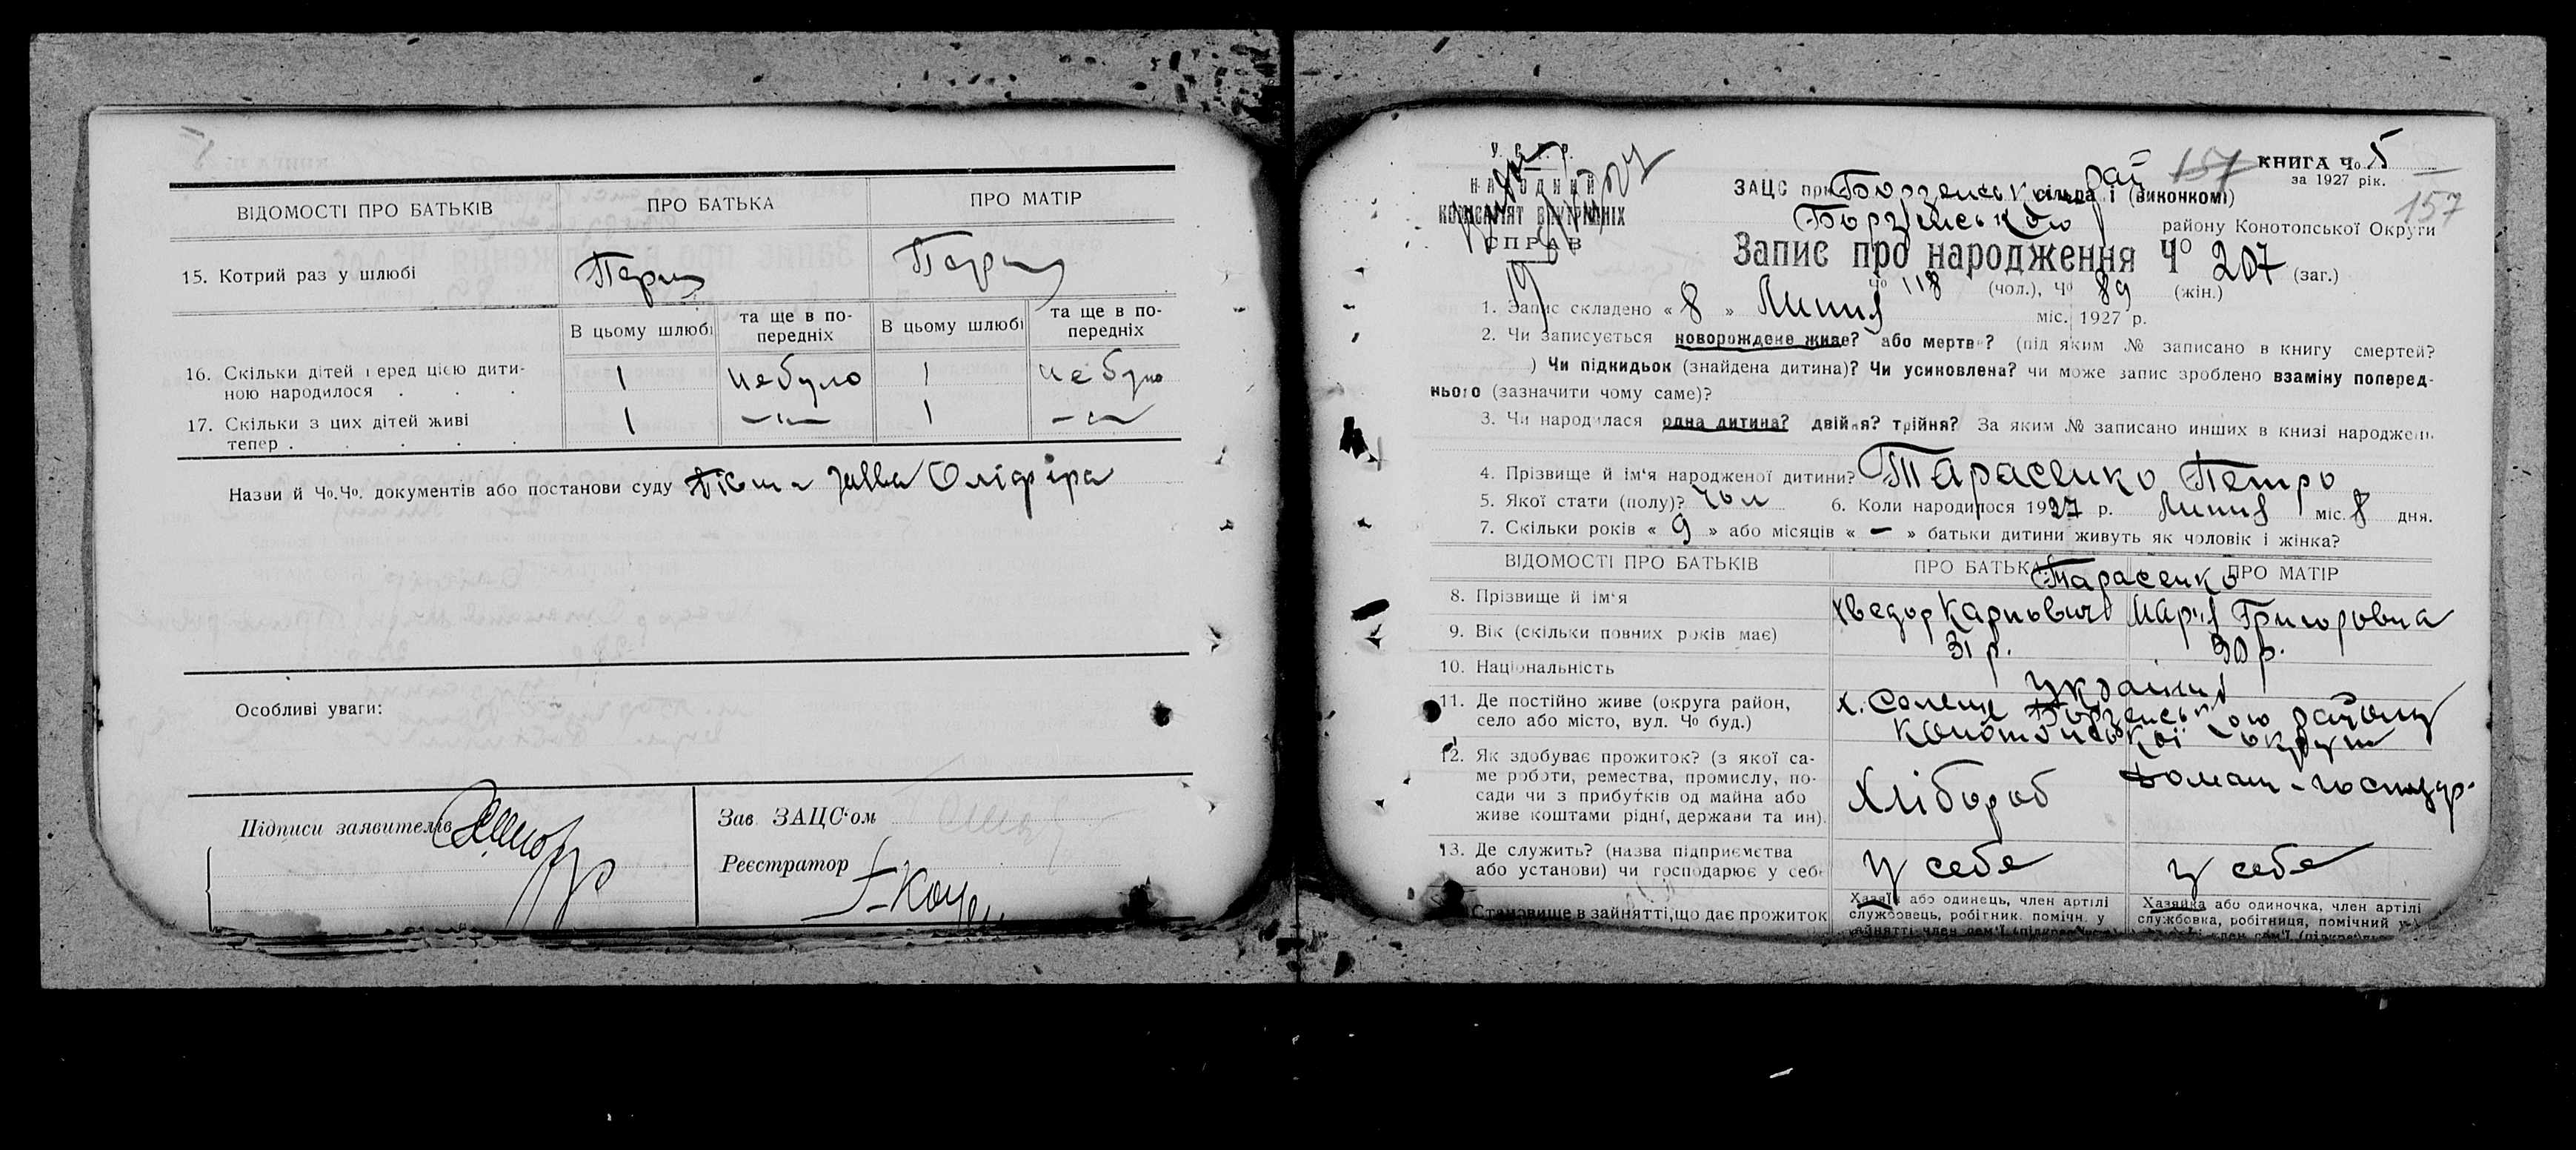 ВІДОМОСТІ ПРО БАТЬКІВ
ПРО БАТЬКА
ПРО МАТІР
15. Котрий раз у шлюбі
Перш
Перш
В цьому шлюбі
та ще в по-
передніх
В цьому шлюбі
та ще в по-
передніх
16. Скільки дітей перед цією дити-
ною народилося . . .
1
не було
1
не було
17. Скільки з цих дітей живі
тепер . . . . .
1
— " —
1
— " —
Назви й Чо.Чо. документів або постанови суду
Оліфіра
Особливі уваги:
Підписи заявителів
Зав. ЗАЦС‘ом
Реєстратор
У. С. Р. Р.
НАРОДНИЙ
КОМІСАРІЯТ ВНУТРІШНІХ
СПРАВ
157
КНИГА Чо 5
за 1927 рік.
157
ЗАЦС при Борзенськ рай сільраді (виконкомі)
Борзенського району Конотопської Округи
Запис про народження Чо 207 (заг.)
Чо 118 (чол.), Чо 89 (жін.)
1. Запис складено « 8 » Липня міс. 1927 р.
2. Чи записується новорождене живе? або мертве? (під яким № записано в книгу смертей?
) Чи підкидьок (знайдена дитина)? Чи усиновлена? чи може запис зроблено взаміну поперед-
нього (зазначити чому саме)?
3. Чи народилася одна дитина? двійня? трійня? За яким № записано инших в книзі народжень
4. Прізвище й ім‘я народженої дитини? Тарасенко Петро
5. Якої стати (полу)? Чол 6. Коли народилося 1927 р. Липня міс. 8 дня.
7. Скільки років « 9 » або місяців « — » батьки дитини живуть як чоловік і жінка?
ВІДОМОСТІ ПРО БАТЬКІВ
ПРО БАТЬКА
ПРО МАТІР
Тарасенко
8. Прізвище й ім‘я
Хведор Карпович
Марія Григоровна
9. Вік (скільки повних років має)
31 р.
30 р.
10. Національність
Україн
11. Де постійно живе (округа район,
село або місто, вул. Чо буд.)
х. Борзенського району
Конотопської округи
12. Як здобуває прожиток? (з якої са-
ме роботи, ремества, промислу, по-
сади чи з прибутків од майна або
живе коштами рідні, держави та ин).
Хлібороб
Домаш. господар.
13. Де служить? (назва підприємства
або установи) чи господарює у себе
у себе
у себе
Становище в зайнятті, що дає прожиток
Хазяїн або одинець, член артілі
службовець, робітник. помічн. у
зайнятті член сем‘ї (підкреслити)
Хазяйка або одиночка, член артілі
службовка, робітниця, помічний у
член сем‘ї